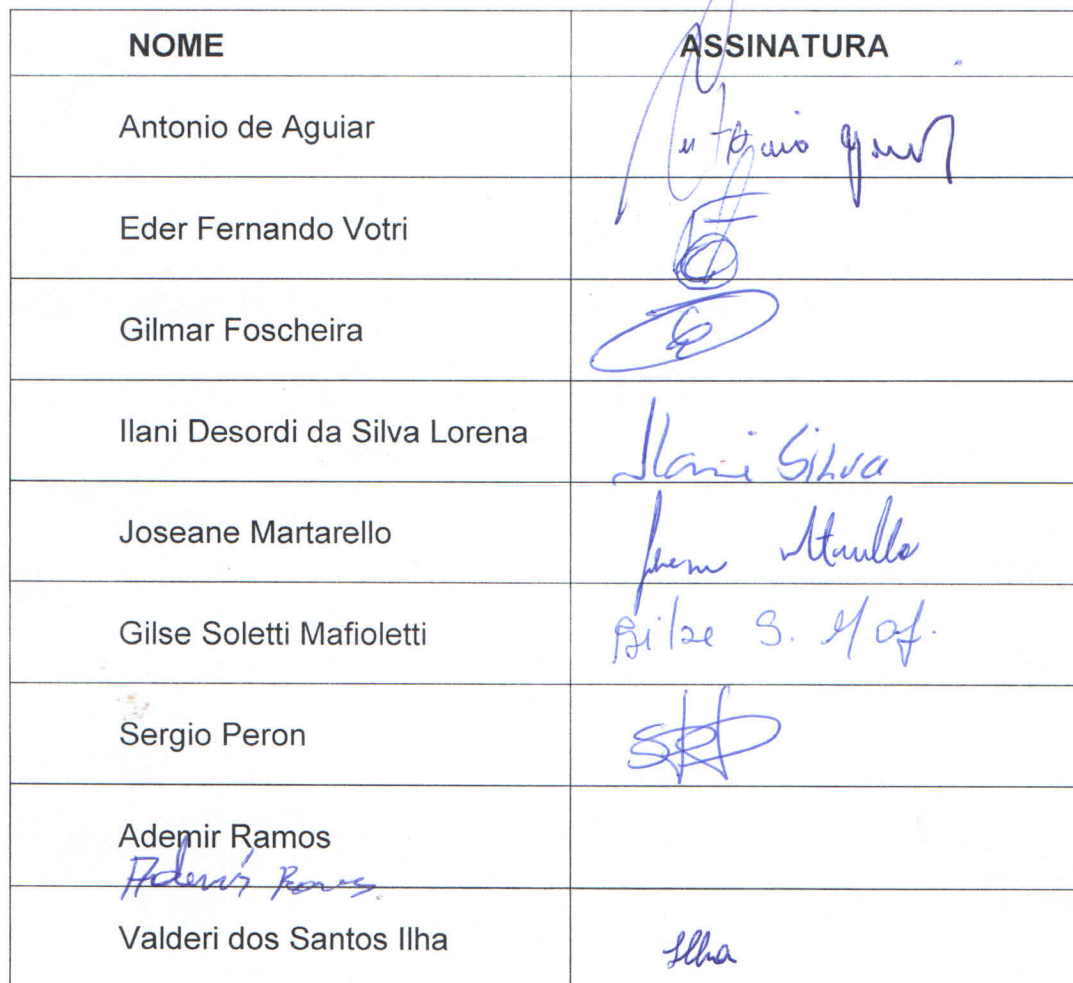 NOME ASSINATURA
Antonio de Aguiar
Eder Fernando Votri
Gilmar Foscheira
Ilani Desordi da Silva Lorena Ilani Silva
Joseane Martarello
Gilse Soletti Mafioletti Gilse S. Maf.
Sergio Peron
Ademir Ramos
Ademir Ramos
Valderi dos Santos Ilha Ilha